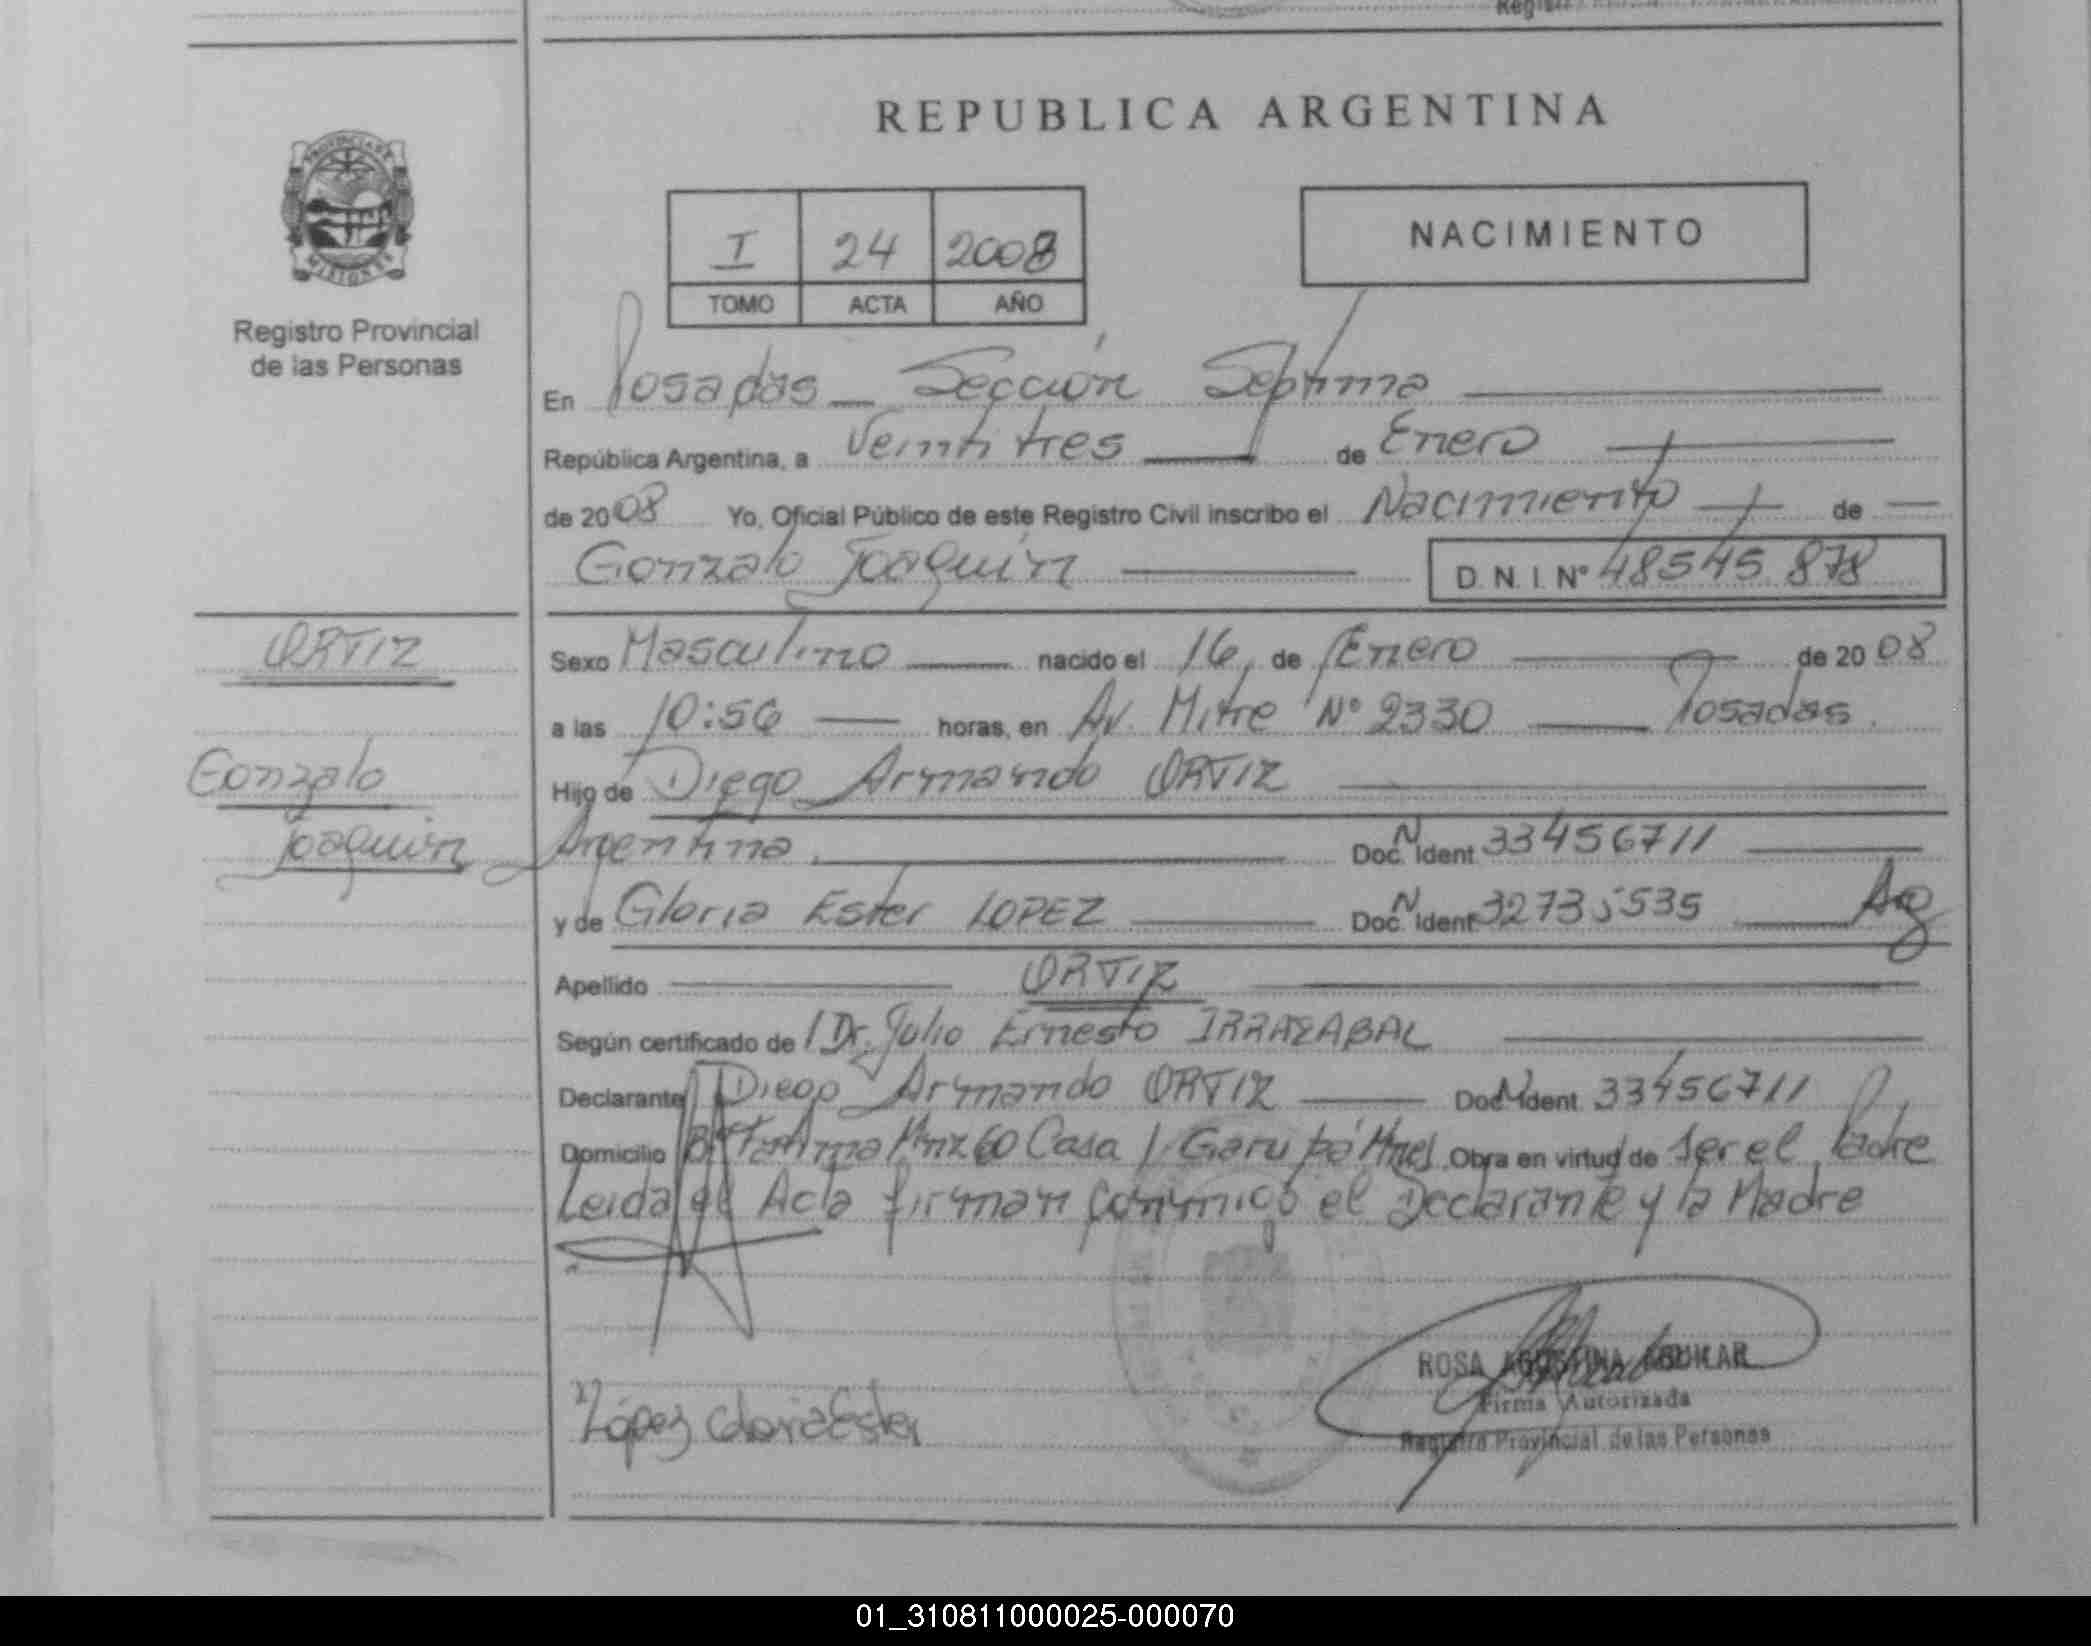 REPUBLICA ARGENTINA
PROVINCIA DE
MISIONES
Registro Provincial
de las Personas
I 24 2008
TOMO ACTA AÑO
NACIMIENTO
En Posadas - Sección Septima
República Argentina, a Veintitres de Enero
de 2008 Yo, Oficial Público de este Registro Civil inscribo el Nacimiento de
Gonzalo Joaquín D. N. I. Nº 48545 878
ORTIZ
Gonzalo
Joaquín
Sexo Masculino nacido el 16, de Enero de 2008
a las 10:56 horas, en Av. Mitre Nº 2330 Posadas.
Hijo de Diego Armando ORTIZ
Argentina. Doc. N Ident 33456711
y de Gloria Ester LOPEZ Doc. N Ident 32735535 Arg
Apellido ORTIZ
Según certificado de Dr. Julio Ernesto IRRAZABAL
Declarante Diego Armando ORTIZ Doc N Ident. 33456711
Domicilio Bº Fatima Mnz 60 Casa 1 Garupá Mnes Obra en virtud de Ser el Padre
Leida el Acta firman conmigo el Declarante y la Madre
López Gloria Ester
ROSA AGUSTINA AGUILAR
Firma Autorizada
Registro Provincial de las Personas
01_310811000025-000070